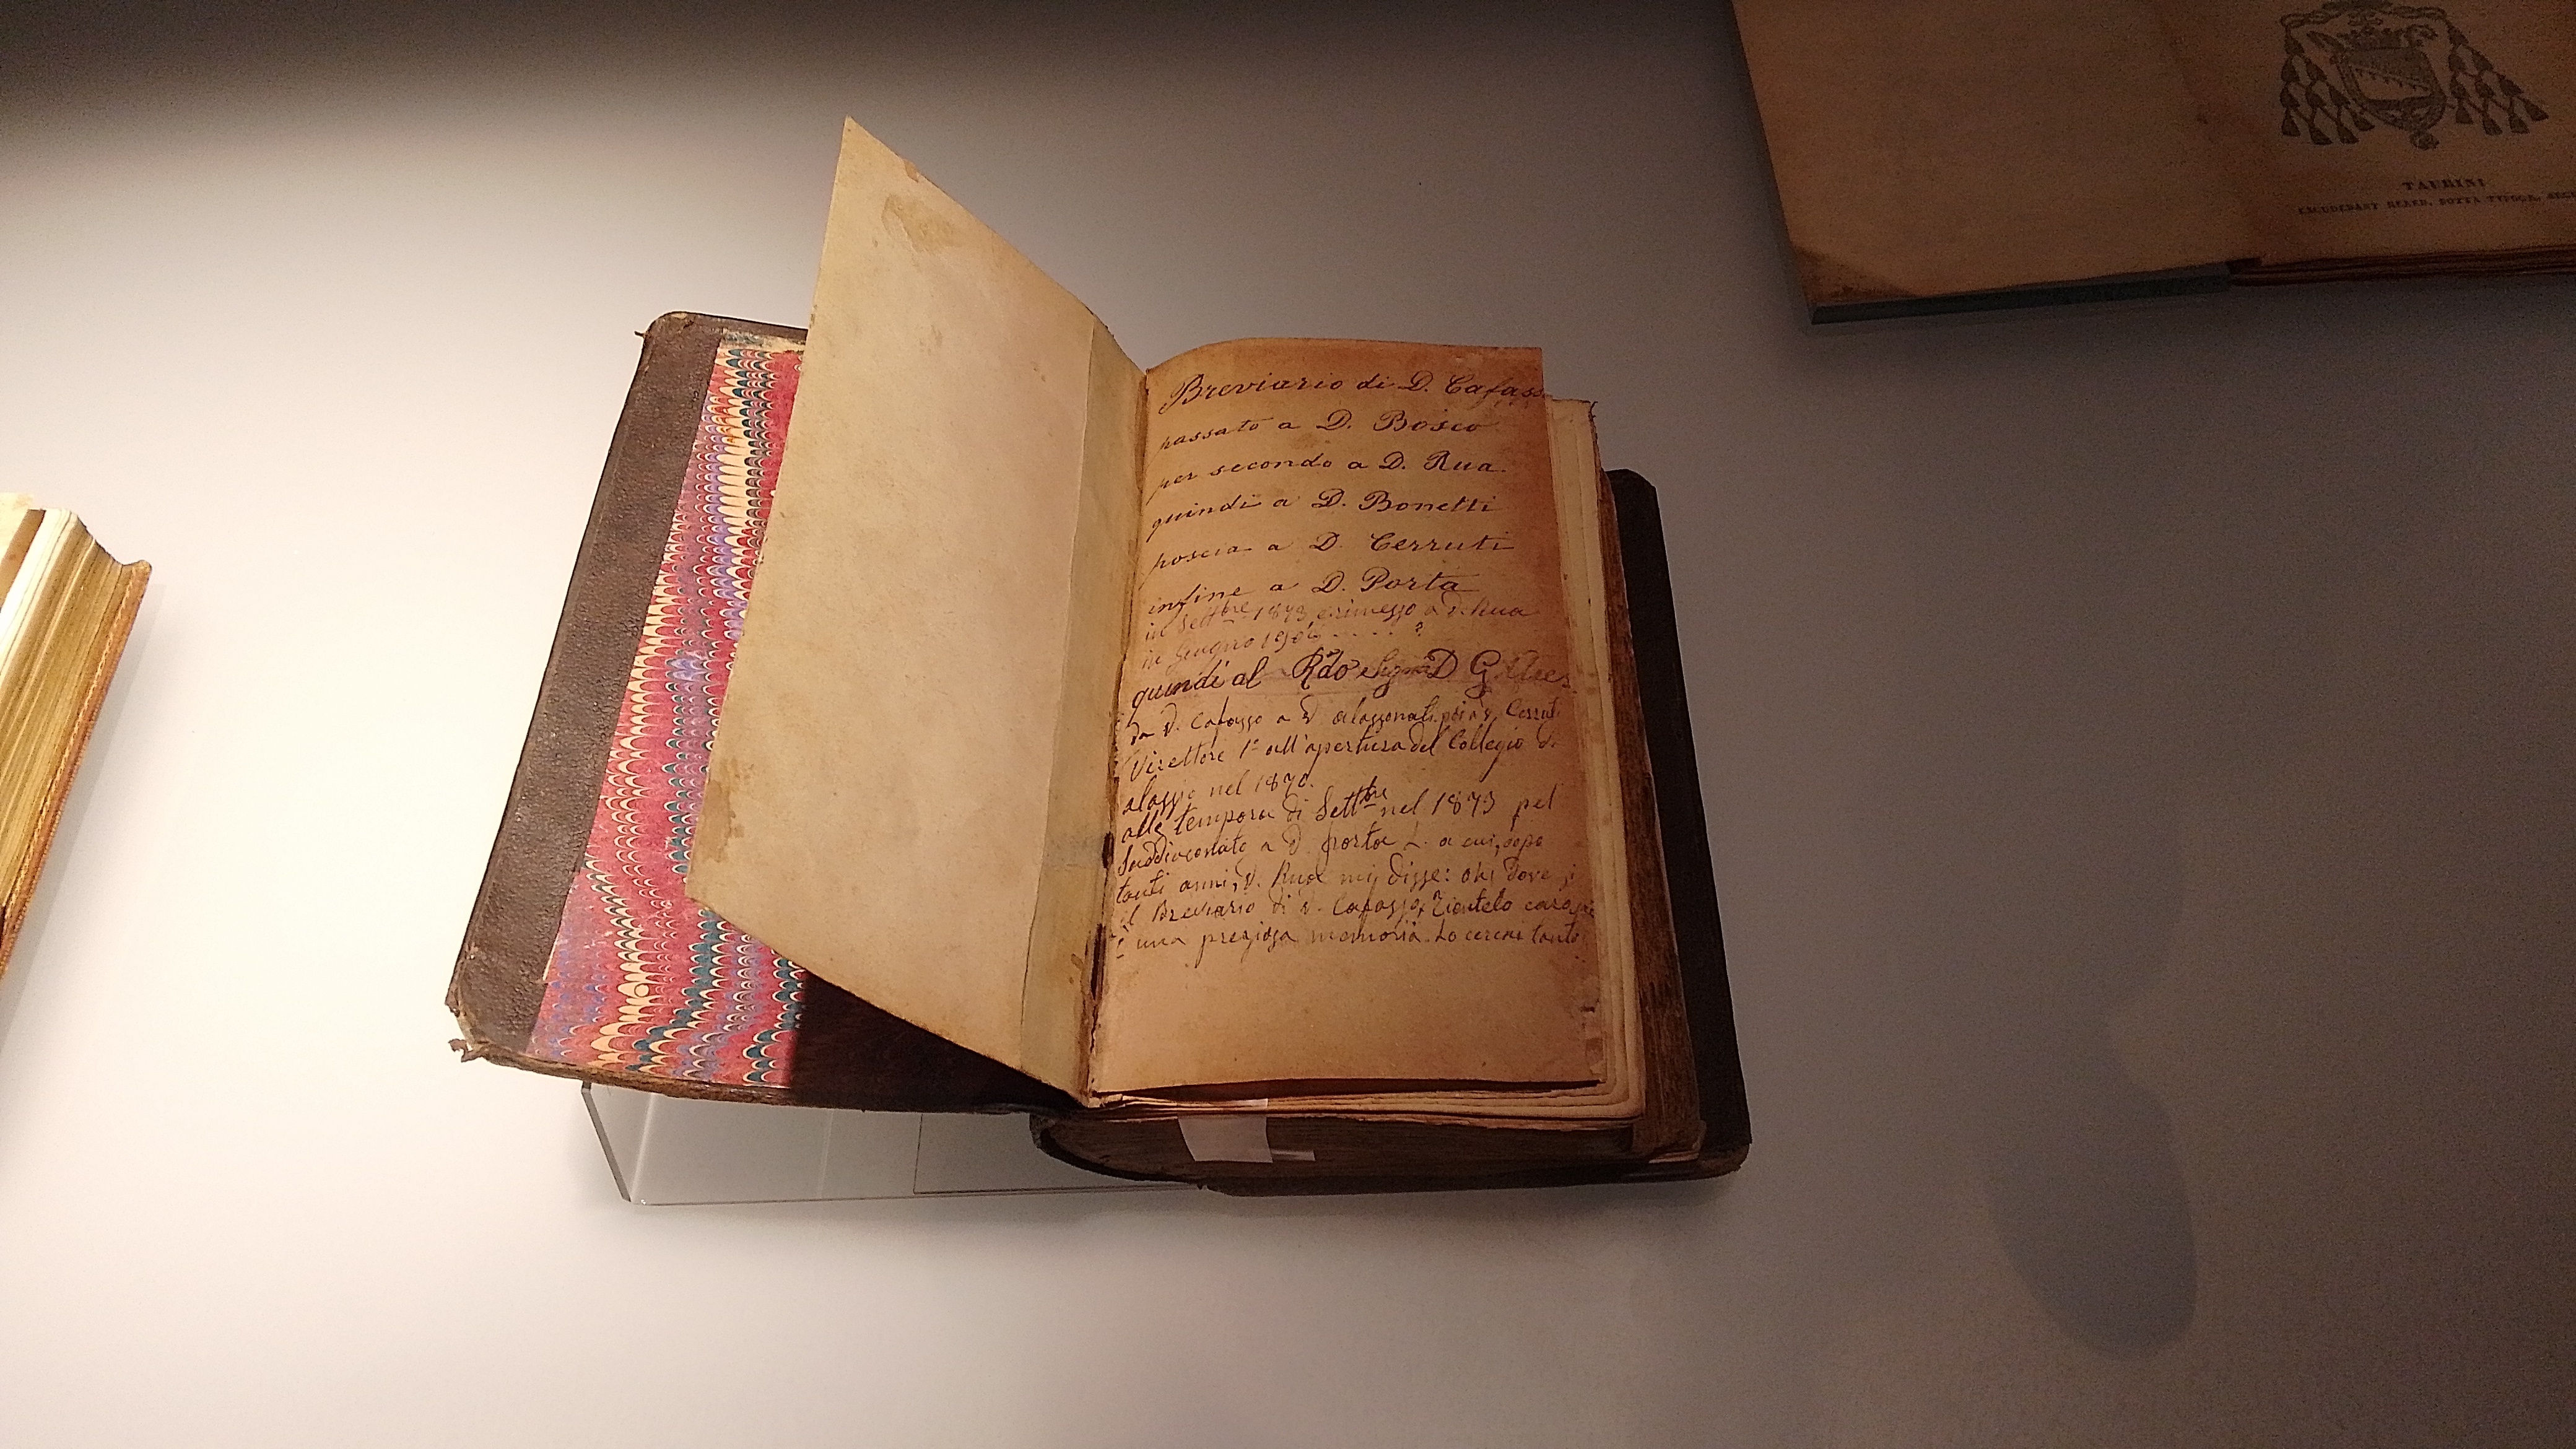 Breviario di D. Cafass
passato a D. Bosco
per secondo a D. Rua
quindi a D. Bonetti
poscia a D. Cerruti
infine a D. Porta
in Settbre 1873 e rimesso a d. Rua
in Giugno 190 ..... ?
quindi al Rdo Sigr D G
da D. Cafasso a D. Alassonati poi a D. Cerruti
Direttore 1º all'apertura del Collegio d.
alassio nel 1870.
alle tempora di Settbre nel 1873 pel
Suddiaconato a D. Porta L. a cui, dopo
tanti anni, D. Rua mi disse: oh! dove
il Breviario di D. Cafasso? Tientelo caro
è una preziosa memoria. Lo cercai tanto
TAURINI
EXCUDEBANT HERED. BOTTA TYPOGR.